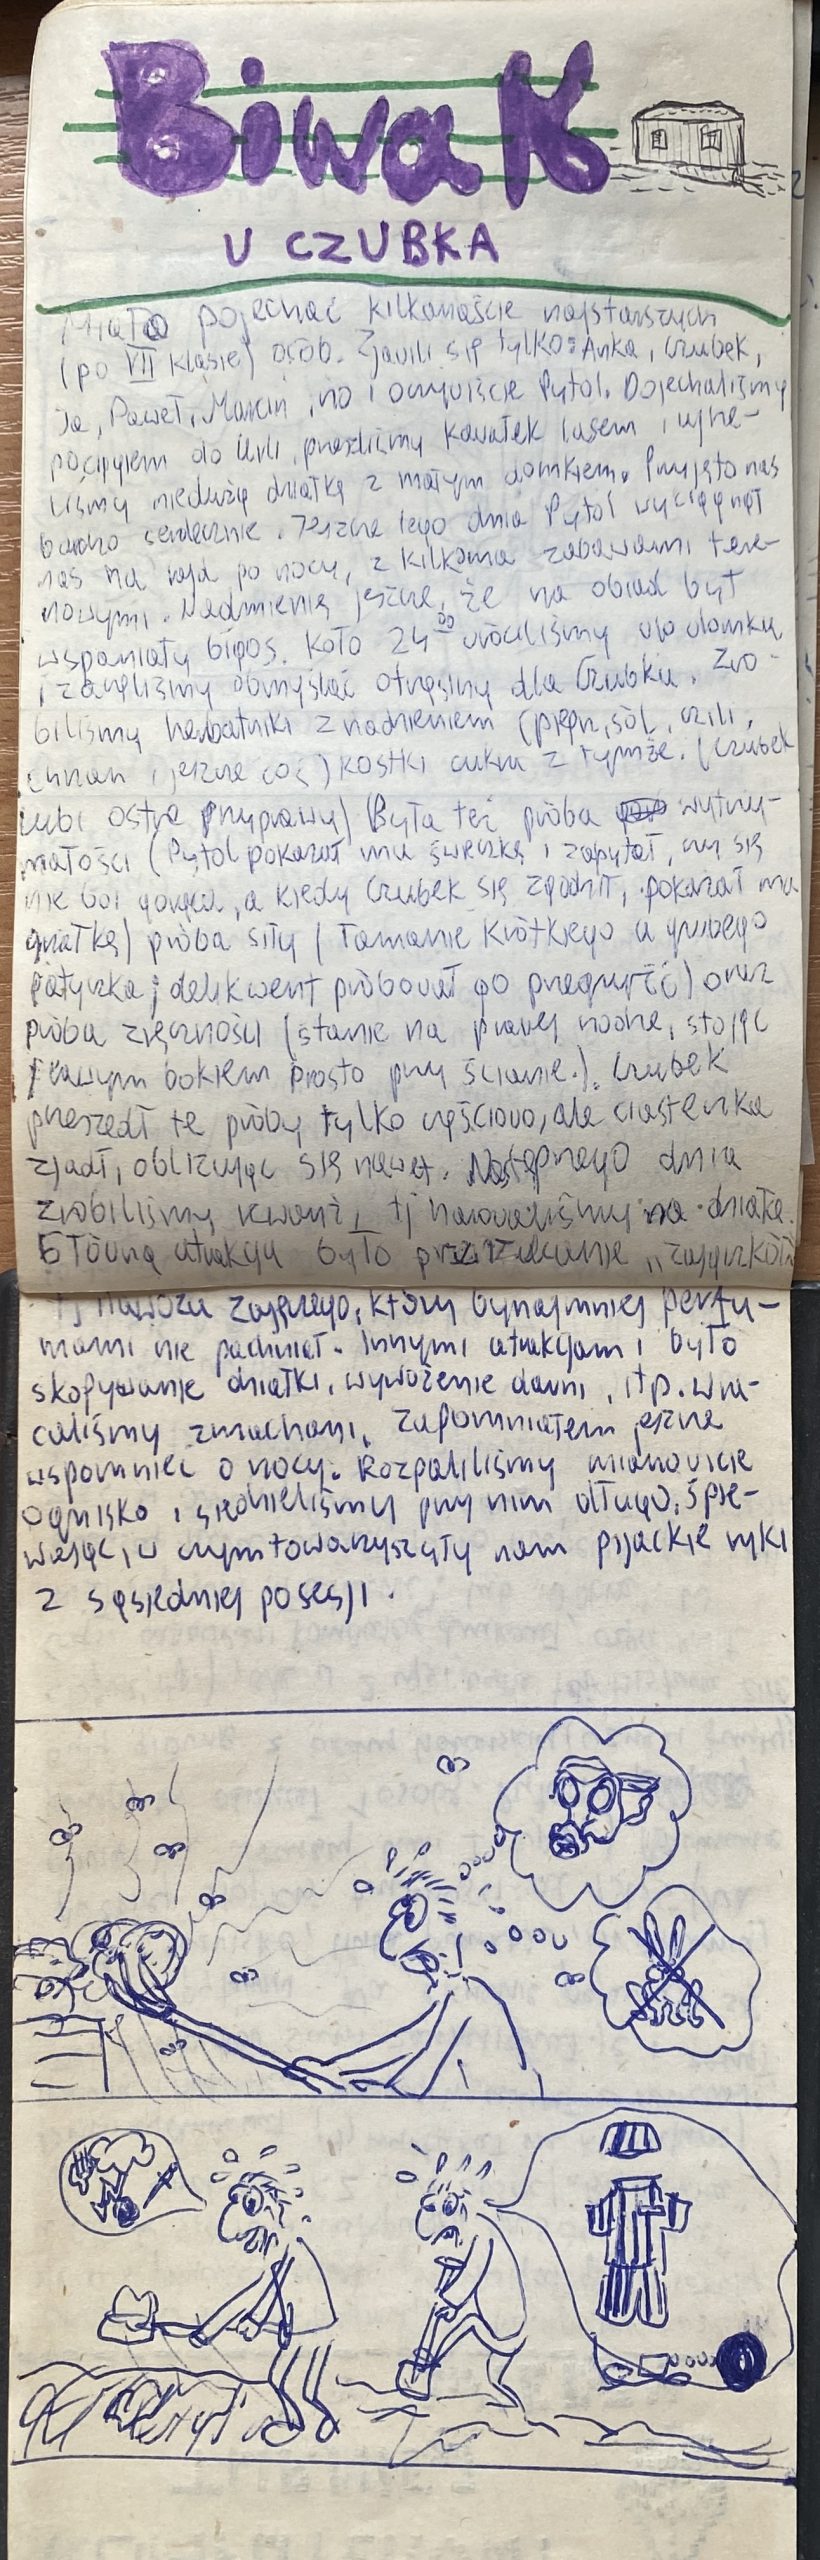 Biwak
U CZUBKA
Miało pojechać kilkanaście najstarszych
(po VII klasie) osób. Zjawili się tylko: Anka, Czubek,
ja, Paweł, Marcin, no i oczywiście Pytol. Dojechaliśmy
pociągiem do Urli, przeszliśmy kawałek lasem i ujrze-
liśmy niedużą działkę z małym domkiem. Przyjęto nas
bardzo serdecznie. Jeszcze tego dnia Pytol wyciągnął
nas na rajd po nocy, z kilkoma zabawami tere-
nowymi. Nadmienię jeszcze, że na obiad był
wspaniały bigos. Koło 24 00 wróciliśmy do domku
i zaczęliśmy obmyślać otrzęsiny dla Czubka. Zro-
biliśmy herbatniki z nadzieniem (pieprz, sól, czili,
chrzan i jeszcze coś) kostki cukru z tymże. (Czubek
lubi ostre przyprawy) Była też próba wytrzy-
małości (Pytol pokazał mu świeczkę i zapytał, czy się
nie boi gorąca, a kiedy Czubek się zgodził, pokazał mu
gnatkę) próba siły (łamanie krótkiego a grubego
patyczka; delikwent próbował go przegryźć) oraz
próba zręczności (stanie na prawej nodze, stojąc
prawym bokiem prosto przy ścianie.). Czubek
przeszedł te próby tylko częściowo, ale ciasteczka
zjadł, oblizując się nawet. Następnego dnia
zrobiliśmy kwarż, tj harowaliśmy na działce.
Główną atrakcją było przerzucanie „zajączków"
tj nawozu zajęczego, który bynajmniej perfu-
mami nie pachniał. Innymi atrakcjami było
skopywanie działki, wywożenie darni, itp. Wra-
caliśmy zmachani. Zapomniałem jeszcze
wspomnieć o nocy. Rozpaliliśmy mianowicie
ognisko i siedzieliśmy przy nim długo, śpie-
wając, w czym towarzyszyły nam pijackie ryki
z sąsiedniej posesji.